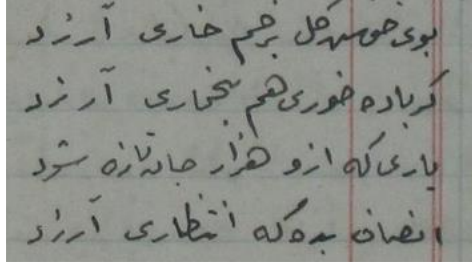 بوی خوش گل بزخم خاری آرزد
گر باده خوری هم بخماری آرزد
یاری که ازو هزار جان تازه شود
انصاف بده که انتظاری آرزد